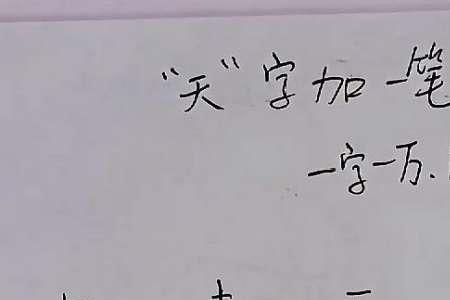 “天”字加一笔
一字一万.